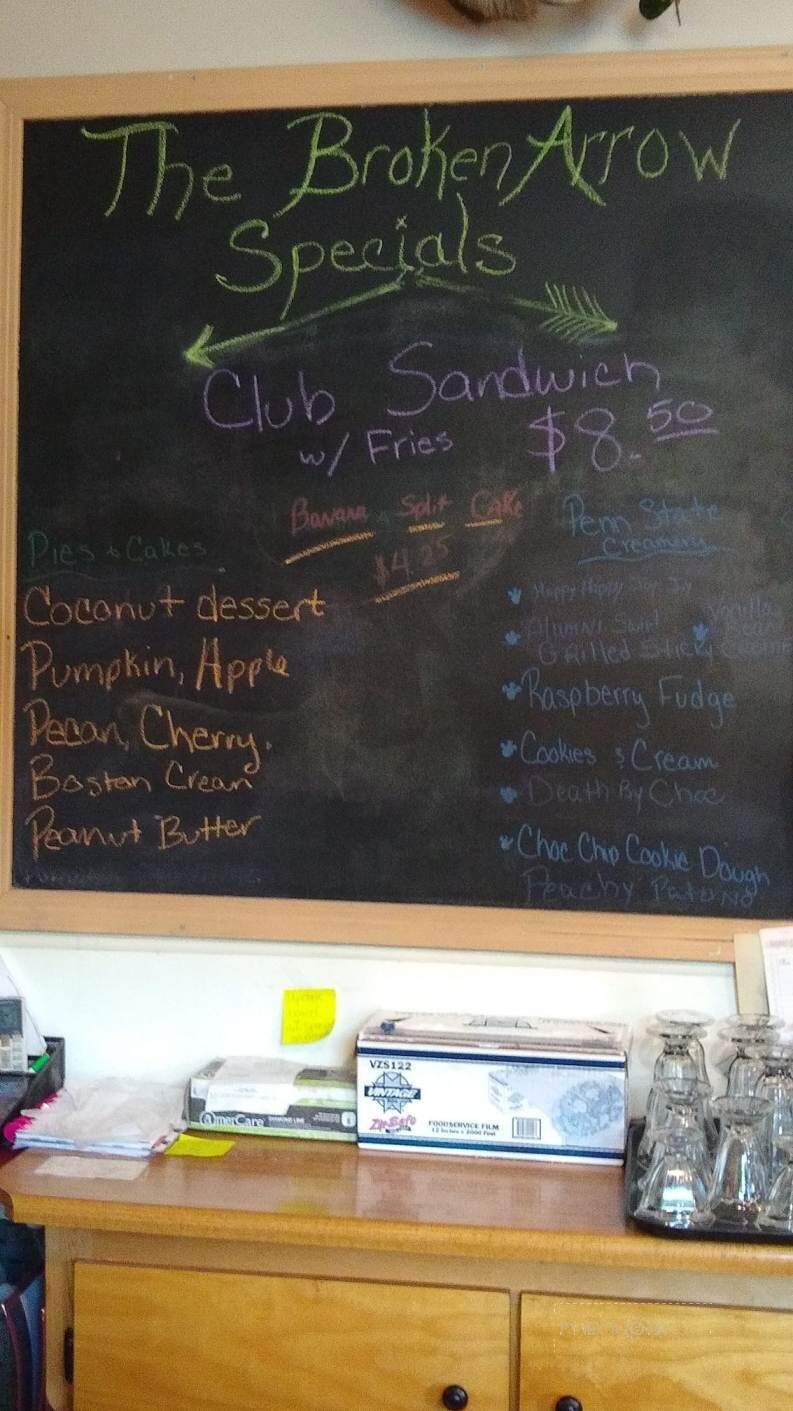 The Broken Arrow
Specials
Club Sandwich
w/ Fries $8.50
Banana Split Cake
$4.25
Pies & Cakes
Coconut dessert
Pumpkin, Apple
Pecan, Cherry.
Boston Cream
Peanut Butter
Penn State
Creamery
Happy Happy Joy Joy
Alumni Swirl
Vanilla
Bean
Grilled Sticky
Raspberry Fudge
Cookies & Cream
Death By Choc
Choc Chip Cookie Dough
Peachy Paterno
VZS122
VINTAGE
FOODSERVICE FILM
12 Inches x 2000 Feet
AmerCare